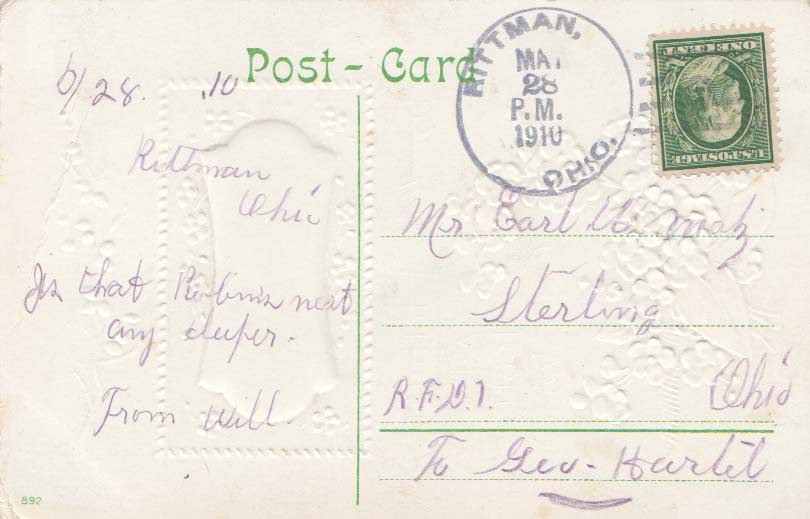 Post-Card
RITTMAN,
MAY
28
P.M.
1910
OHIO.
ONE CENT
U.S. POSTAGE
6/28. .10
Rittman
Ohio
Is that Robins nest
any deeper.
From Will
Mr Earl
Sterling
Ohio
R.F.D.1.
To Geo-
892